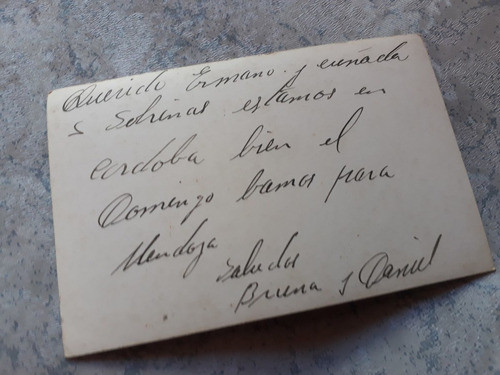 Querido Ermano y cuñada
s Sobrinas estamos en
cordoba bien el
Domingo bamos para
Mendoza
Saludos
Bruna y Daniel